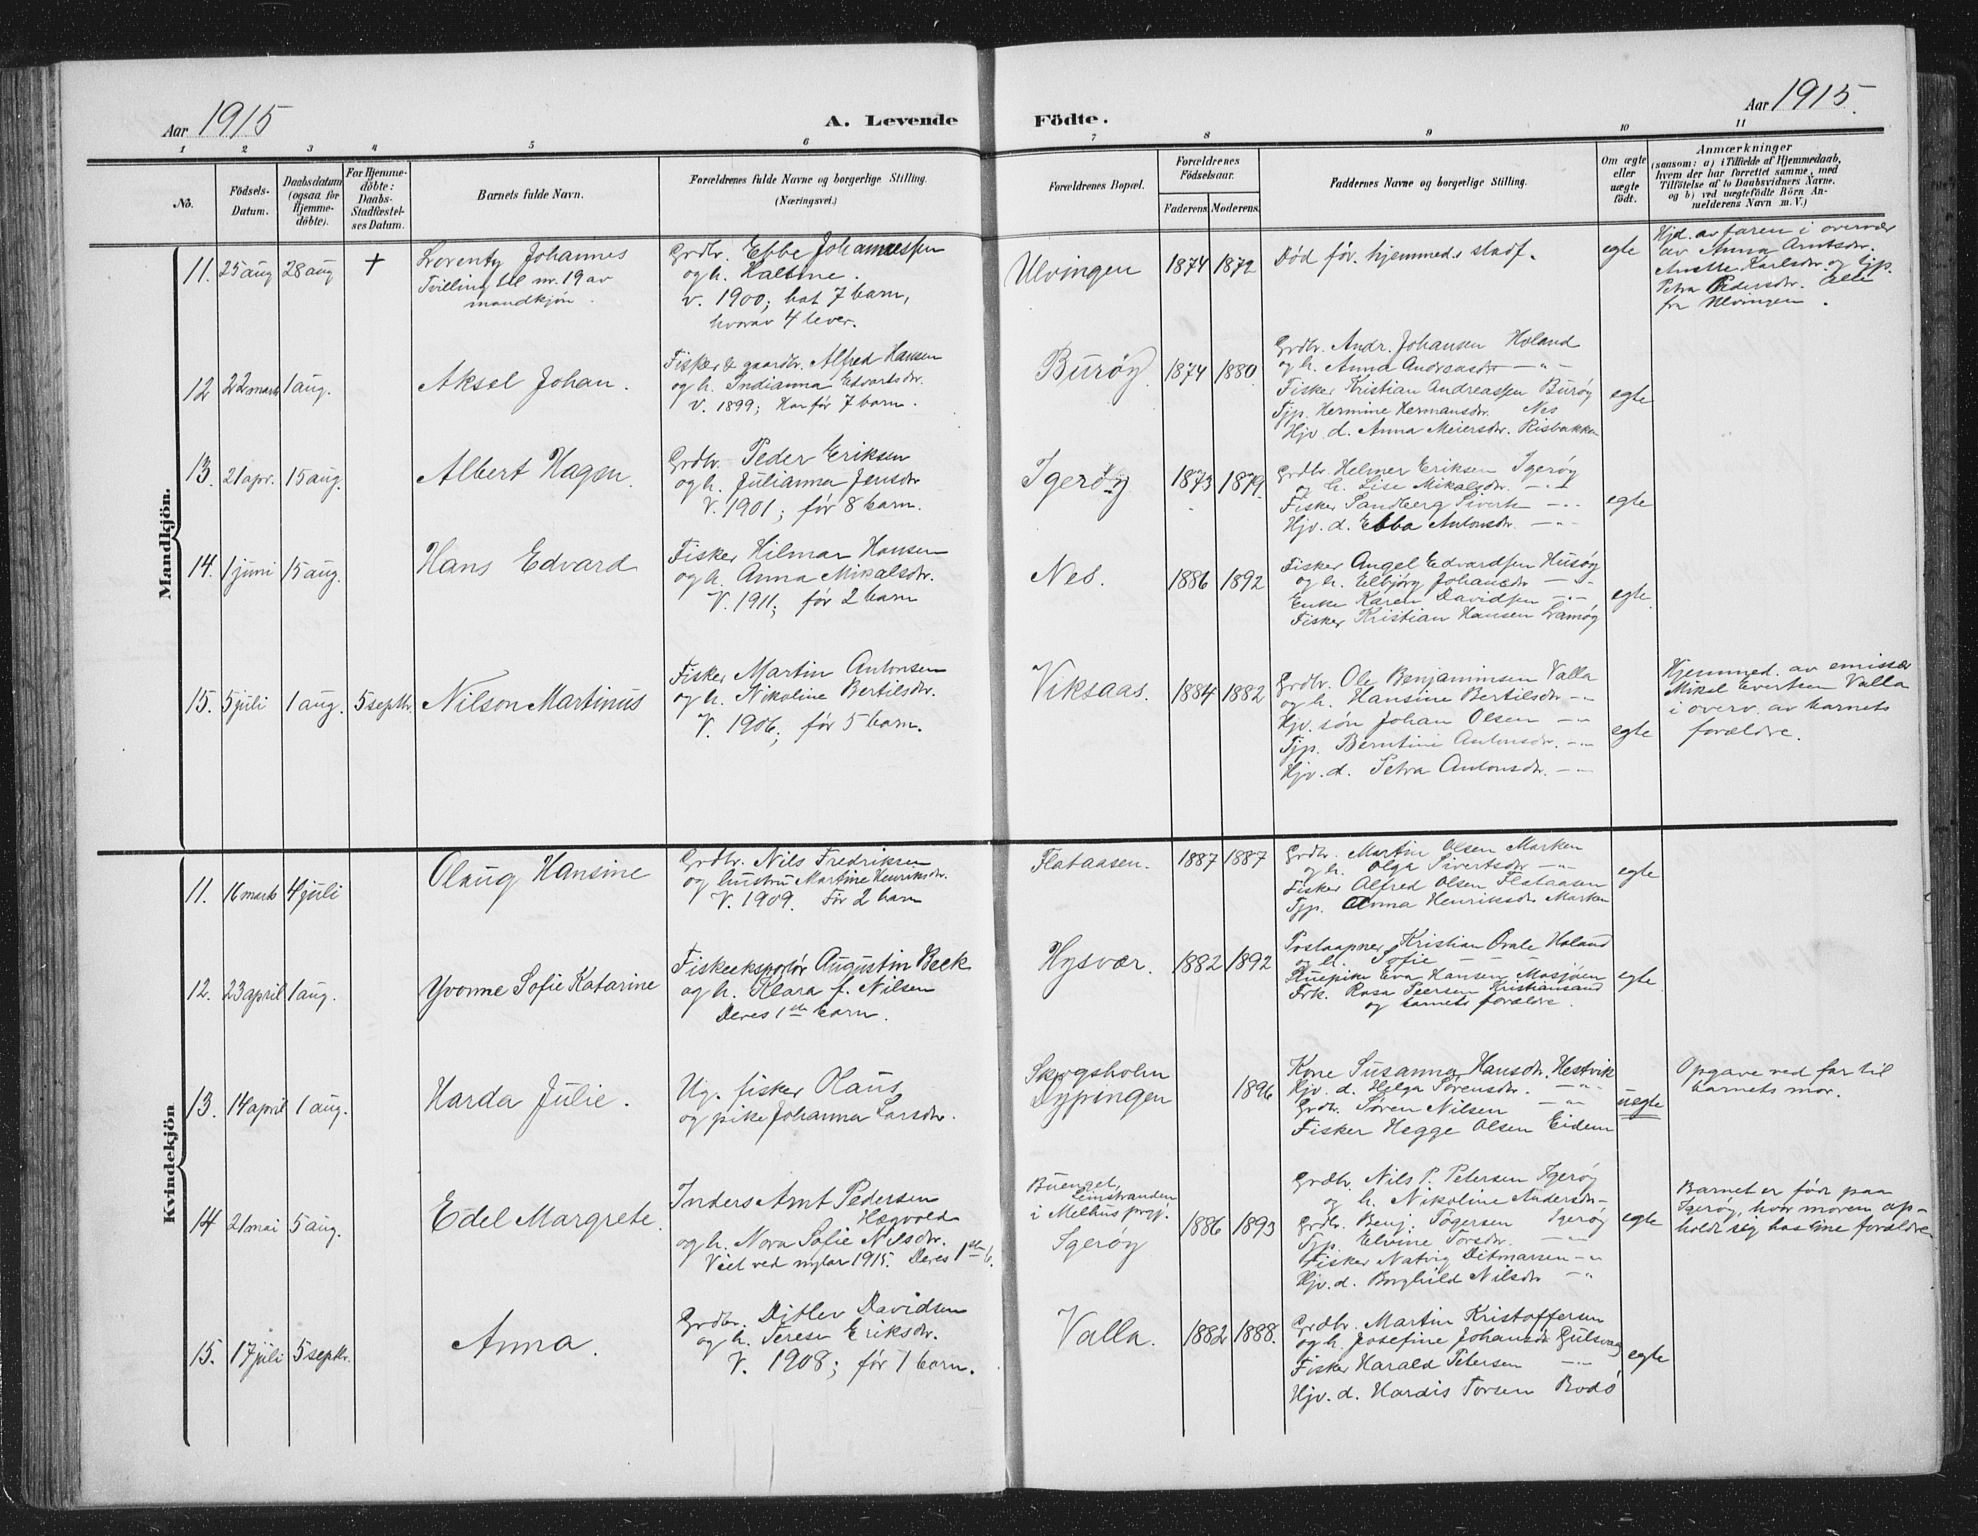 Aar 1915
A. Levende Födte.
Aar 1915.
1 2 3 4 5 6 7 8 9 10 11
No.
Födsels-
Datum.
Daabsdatum
(ogsaa for
Hjemme-
döbte).
For Hjemme-
döbte:
Daabs-
Stadfæstel-
ses Datum.
Barnets fulde Navn.
Forældrenes fulde Navne og borgerlige Stilling.
(Næringsvei.)
Forældrenes Bopæl.
Forældrenes
Födselsaar.
Faderens. Moderens.
Faddernes Navne og borgerlige Stilling.
Om ægte
eller
uægte
födt.
Anmærkninger
(saasom: a) i Tilfælde af Hjemmedaab,
hvem der har forrettet samme, med
Tilföielse af to Daabsvidners Navne.
og b) ved uægtefödte Börn An-
melderens Navn m. V.)
Mandkjön.
11. 25 aug 28 aug +
Lorents Johannes
Tvilling til nr. 19 av
mandkjön.
Grdbr. Ebbe Johannessen
og h.
v. 1900; hat 7 barn,
hvorav 4 lever.
Ulvingen 1874 1872
Död før hjemmed. stadf.
egte
Hjd. av faren i overvær
av Anna Arntsdr.
Anette Karlsdr. og tjp.
Petra Pedersdr. Alle
fra Ulvingen.
12 22 marts 1 aug.
Aksel Johan.
Fisker & gaardbr. Alfred Hansen
og h. Indianna Edvartsdr.
V. 1899; Har før 7 barn.
Burøy 1874 1880.
Grdbr. Andr. Johansen Holand
og h. Anna Andreasdr — " —
Fisker Kristian Andreassen Burøy
Tjp. Hermine Hermansdr. Nes
Hjv. d. Anna Meiersdr. Risbakken
egte
13. 21 apr. 15 aug.
Albert Hagen.
Grdbr. Peder Eriksen
og h. Julianna Jensdr
V. 1901; før 8 barn.
Igerøy 1873 1879.
Grdbr. Helmer Eriksen Igerøy
og h. Lise Mikalsdr. — " —
Fisker Sandberg Sivertsen — " —
Hjv. d. Ebba Antonsdr. — " —
egte
14. 1 juni 15 aug.
Hans Edvard
Fisker Hilmar Hansen
og h. Anna Mikalsdr.
V. 1911; før 2 barn
Nes. 1886 1892
Fisker Angel Edvardsen Husøy
og h. Elbjørg Johansdr — " —
Enke Karen Davidsen — " —
Fisker Kristian Hansen Lamøy
egte.
15. 5 juli 1 aug. 5 septbr.
Nilson Martinus
Fisker Martin Antonsen
og h. Nikoline Bertilsdr.
V. 1906; før 5 barn.
Viksaas. 1884 1882
Grdbr. Ole Benjaminsen Valla
og h. Hansine Bertilsdr. — " —
Hjv. søn Johan Olsen — " —
Tjp. Berntine Antonsdr. — " —
Hjv. d. Petra Antonsdr. — " —
egte
Hjemmed. av emissær
Mikal Evertsen Valla
i overv. av barnets
forældre.
Kvindekjön
11. 16 marts 4 juli
Olaug Hansine
Grdbr. Nils Fredriksen
og hustru Martine Henriksdr.
V. 1909. Før 2 barn
Flataasen. 1887 1887
Grdbr. Martin Olsen Marken
og h. Olga Sivertsdr — " —
Fisker Alfred Olsen Flataasen
Tjp. Anna Henriksdr Marken
egte
12. 23 april 1 aug.
Yvonne Sofie Katarine
Fiskeeksportör Augustin Beck
og h. Klara f. Nilsen
Deres 1ste barn.
Hysvær. 1882 1892
Postaapner Kristian Hvale Holand
og h. Sofie — — —
Stuepike Eva Hansen Mosjøen
Frk. Rosa Peersen Kristiansand
og barnets forældre.
egte.
13. 14 april 1 aug.
Harda Julie.
Ug. fisker Olaus
og pike Johanna Larsdr.
Skogsholm
Dypingen
1896
Kone Susanna Hansdr. Hestvik
Hjv. d. Helga Sörensdr. — " —
Grdbr. Sören Nilsen — " —
Fisker Hegge Olsen Eidem
uegte
Opgave ved far til
barnets mor.
14 21 mai 5 aug.
Edel Margrete.
Anders Arnt Pedersen
Hægvold
og h. Nora Sofie Nilsdr.
Viet ved nytar 1915. Deres 1ste b.
Buenget,
Leinstranden
i Melhus prgj.
Igerøy
1886 1893
Grdbr. Nils P. Petersen Igerøy
og h. Nikoline Andersdr —
Grdb. Benj. Togersen Igerøy
Tjp. Elvine Torsdr. — " —
Fisker Natvig Ditmarsen — " —
Hjv. d. Borghild Nilsdr — " —
egte
Barnet er født paa
Igerøy, hvor moren op-
holdt sig hos sine forældre
15. 17 juli 5 septbr.
Anna.
Grdbr. Ditlev Davidsen
og h. Terese Eriksdr.
V. 1908; før 1 barn.
Valla. 1882 1888.
Grdbr. Martin Kristoffersen
og h. Josefine Johansdr Gulsvag
Fisker Harald Petersen — " —
Hjv. d. Hardis Torsen Bodø
egte